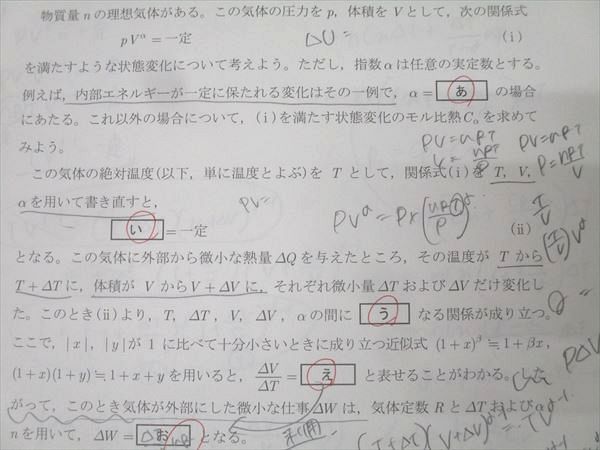 物質量 n の理想気体がある。この気体の圧力を p, 体積を V として, 次の関係式
pV^α = 一定 (i)
ΔU =
を満たすような状態変化について考えよう。ただし, 指数 α は任意の実定数とする。
例えば, 内部エネルギーが一定に保たれる変化はその一例で, α = あ の場合
にあたる。これ以外の場合について, (i)を満たす状態変化のモル比熱 C_α を求めて
みよう。
PV = nRT
PV = nRT
V = nRT/P
P = nRT/V
この気体の絶対温度(以下, 単に温度とよぶ)を T として, 関係式(i)を T, V,
α を用いて書き直すと,
PV=
い = 一定 (ii)
となる。この気体に外部から微小な熱量 ΔQ を与えたところ, その温度が T から
T + ΔT に, 体積が V から V + ΔV に, それぞれ微小量 ΔT および ΔV だけ変化し
た。このとき(ii)より, T, ΔT, V, ΔV, α の間に う なる関係が成り立つ。
ここで, |x|, |y| が 1 に比べて十分小さいときに成り立つ近似式 (1+x)^β ≒ 1+βx,
(1+x)(1+y) ≒ 1+x+y を用いると, ΔV/ΔT = え と表せることがわかる。した
PΔV
がって, このとき気体が外部にした微小な仕事 ΔW は, 気体定数 R と ΔT および α
n を用いて, ΔW = お となる。